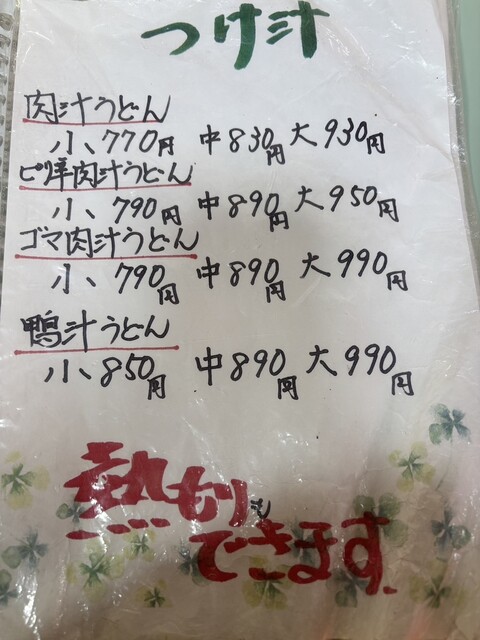 つけ汁
肉汁うどん
小、770円 中830円 大930円
ピリ辛肉汁うどん
小、790円 中890円 大950円
ゴマ肉汁うどん
小、790円 中890円 大990円
鴨汁うどん
小、850円 中890円 大990円
熱もりも
できます